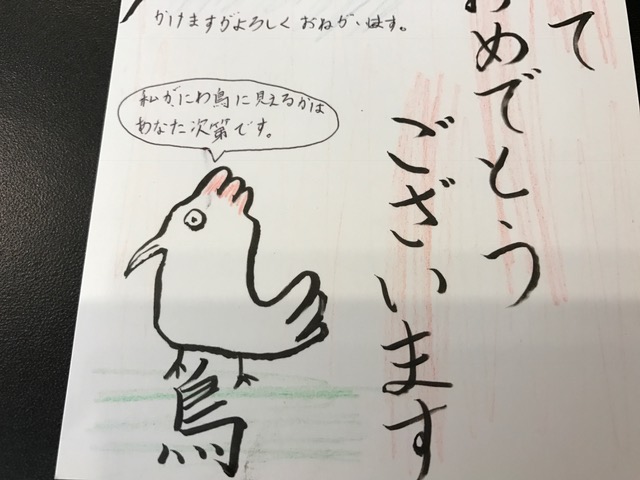 て
おめでとう
ございます
かけますがよろしくおねがいします。
私がにわ鳥に見えるかは
あなた次第です。
鳥